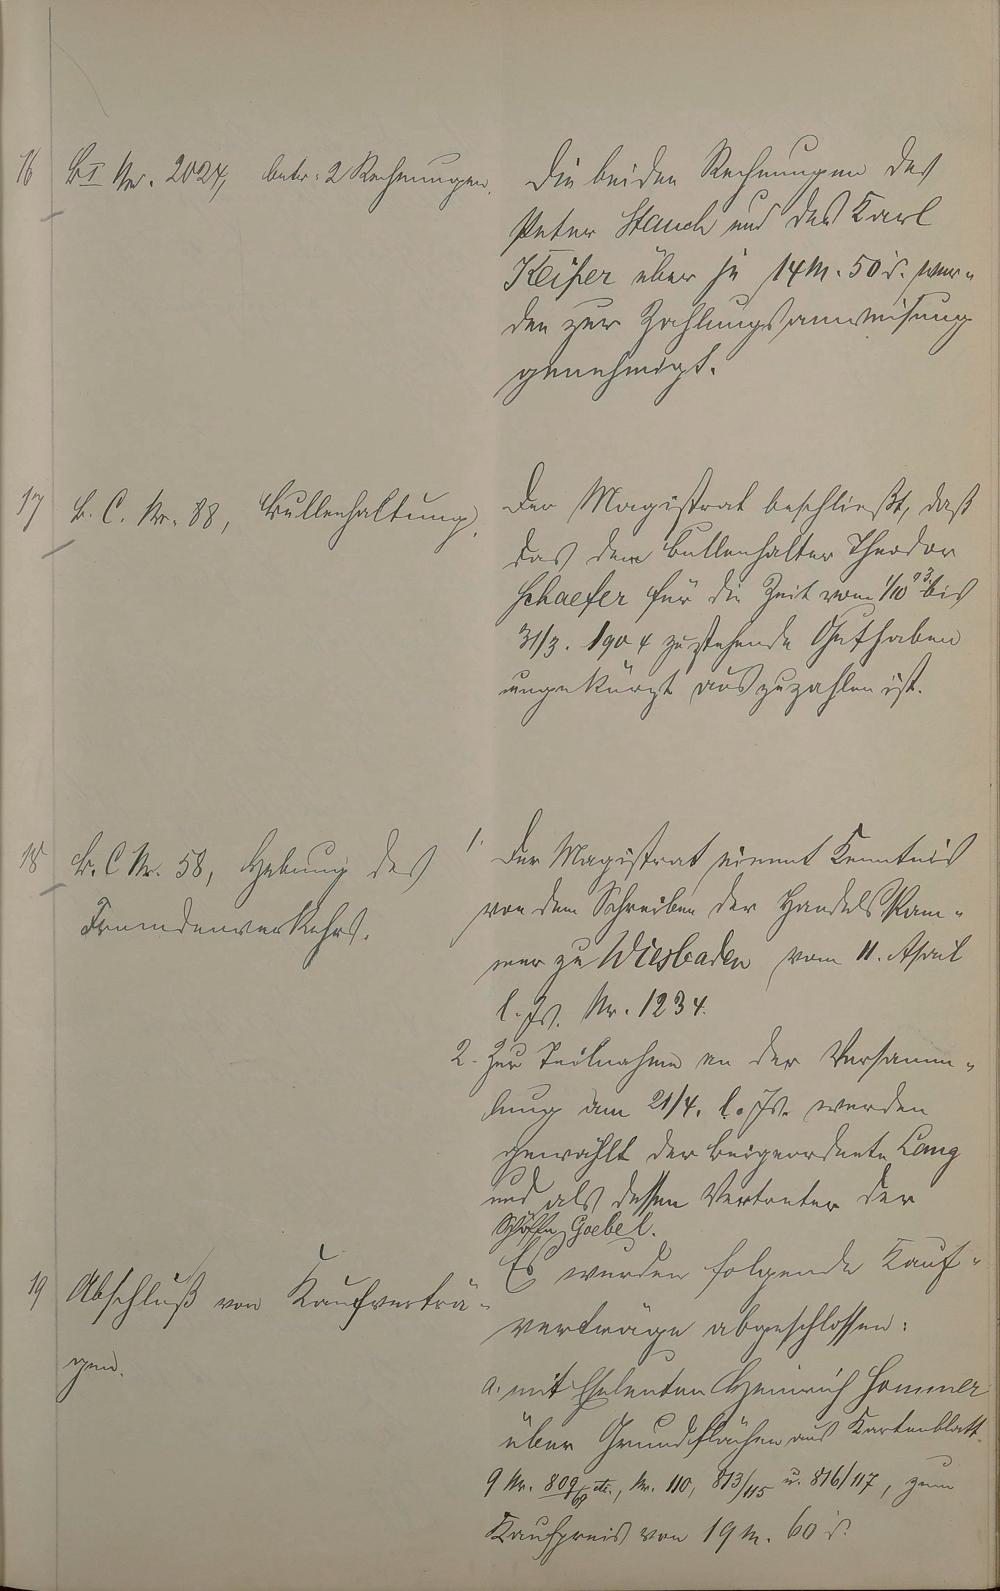 16 B I Nr. 2024, betr. 2 Rechnungen.
Die beiden Rechnungen des
Peter Stauch und des Karl
Keiper über je 14 M. 50 d. wer-
den zur Zahlungsanweisung
genehmigt.
17 B. C. Nr. 88, Bullenhaltung.
Der Magistrat beschließt, daß
das dem Bullenhalter Theodor
Schaefer für die Zeit vom 1/10 03 bis
31/3. 1904 zustehende Guthaben
ungekürzt auszuzahlen ist.
18 B. C Nr. 58, Hebung des
Fremdenverkehrs.
1. Der Magistrat nimmt Kenntnis
von dem Schreiben der Handelskam-
mer zu Wiesbaden vom 11. April
l. Js. Nr. 1234.
2. Zur Teilnahme an der Versamm-
lung am 21/4. l. Js. werden
gewählt der Beigeordnete Lang
und als dessen Vertreter der
Schöffe Goebel.
19 Abschluß von Kaufverträ-
gen.
Es wurden folgende Kauf-
verträge abgeschlossen:
a. mit Eheleuten Heinrich Hommer
über Grundflächen aus Kartenblatt
9 Nr. 809/69 etc., Nr. 110, 813/115 u. 816/117, zum
Kaufpreis von 19 M. 60 d.